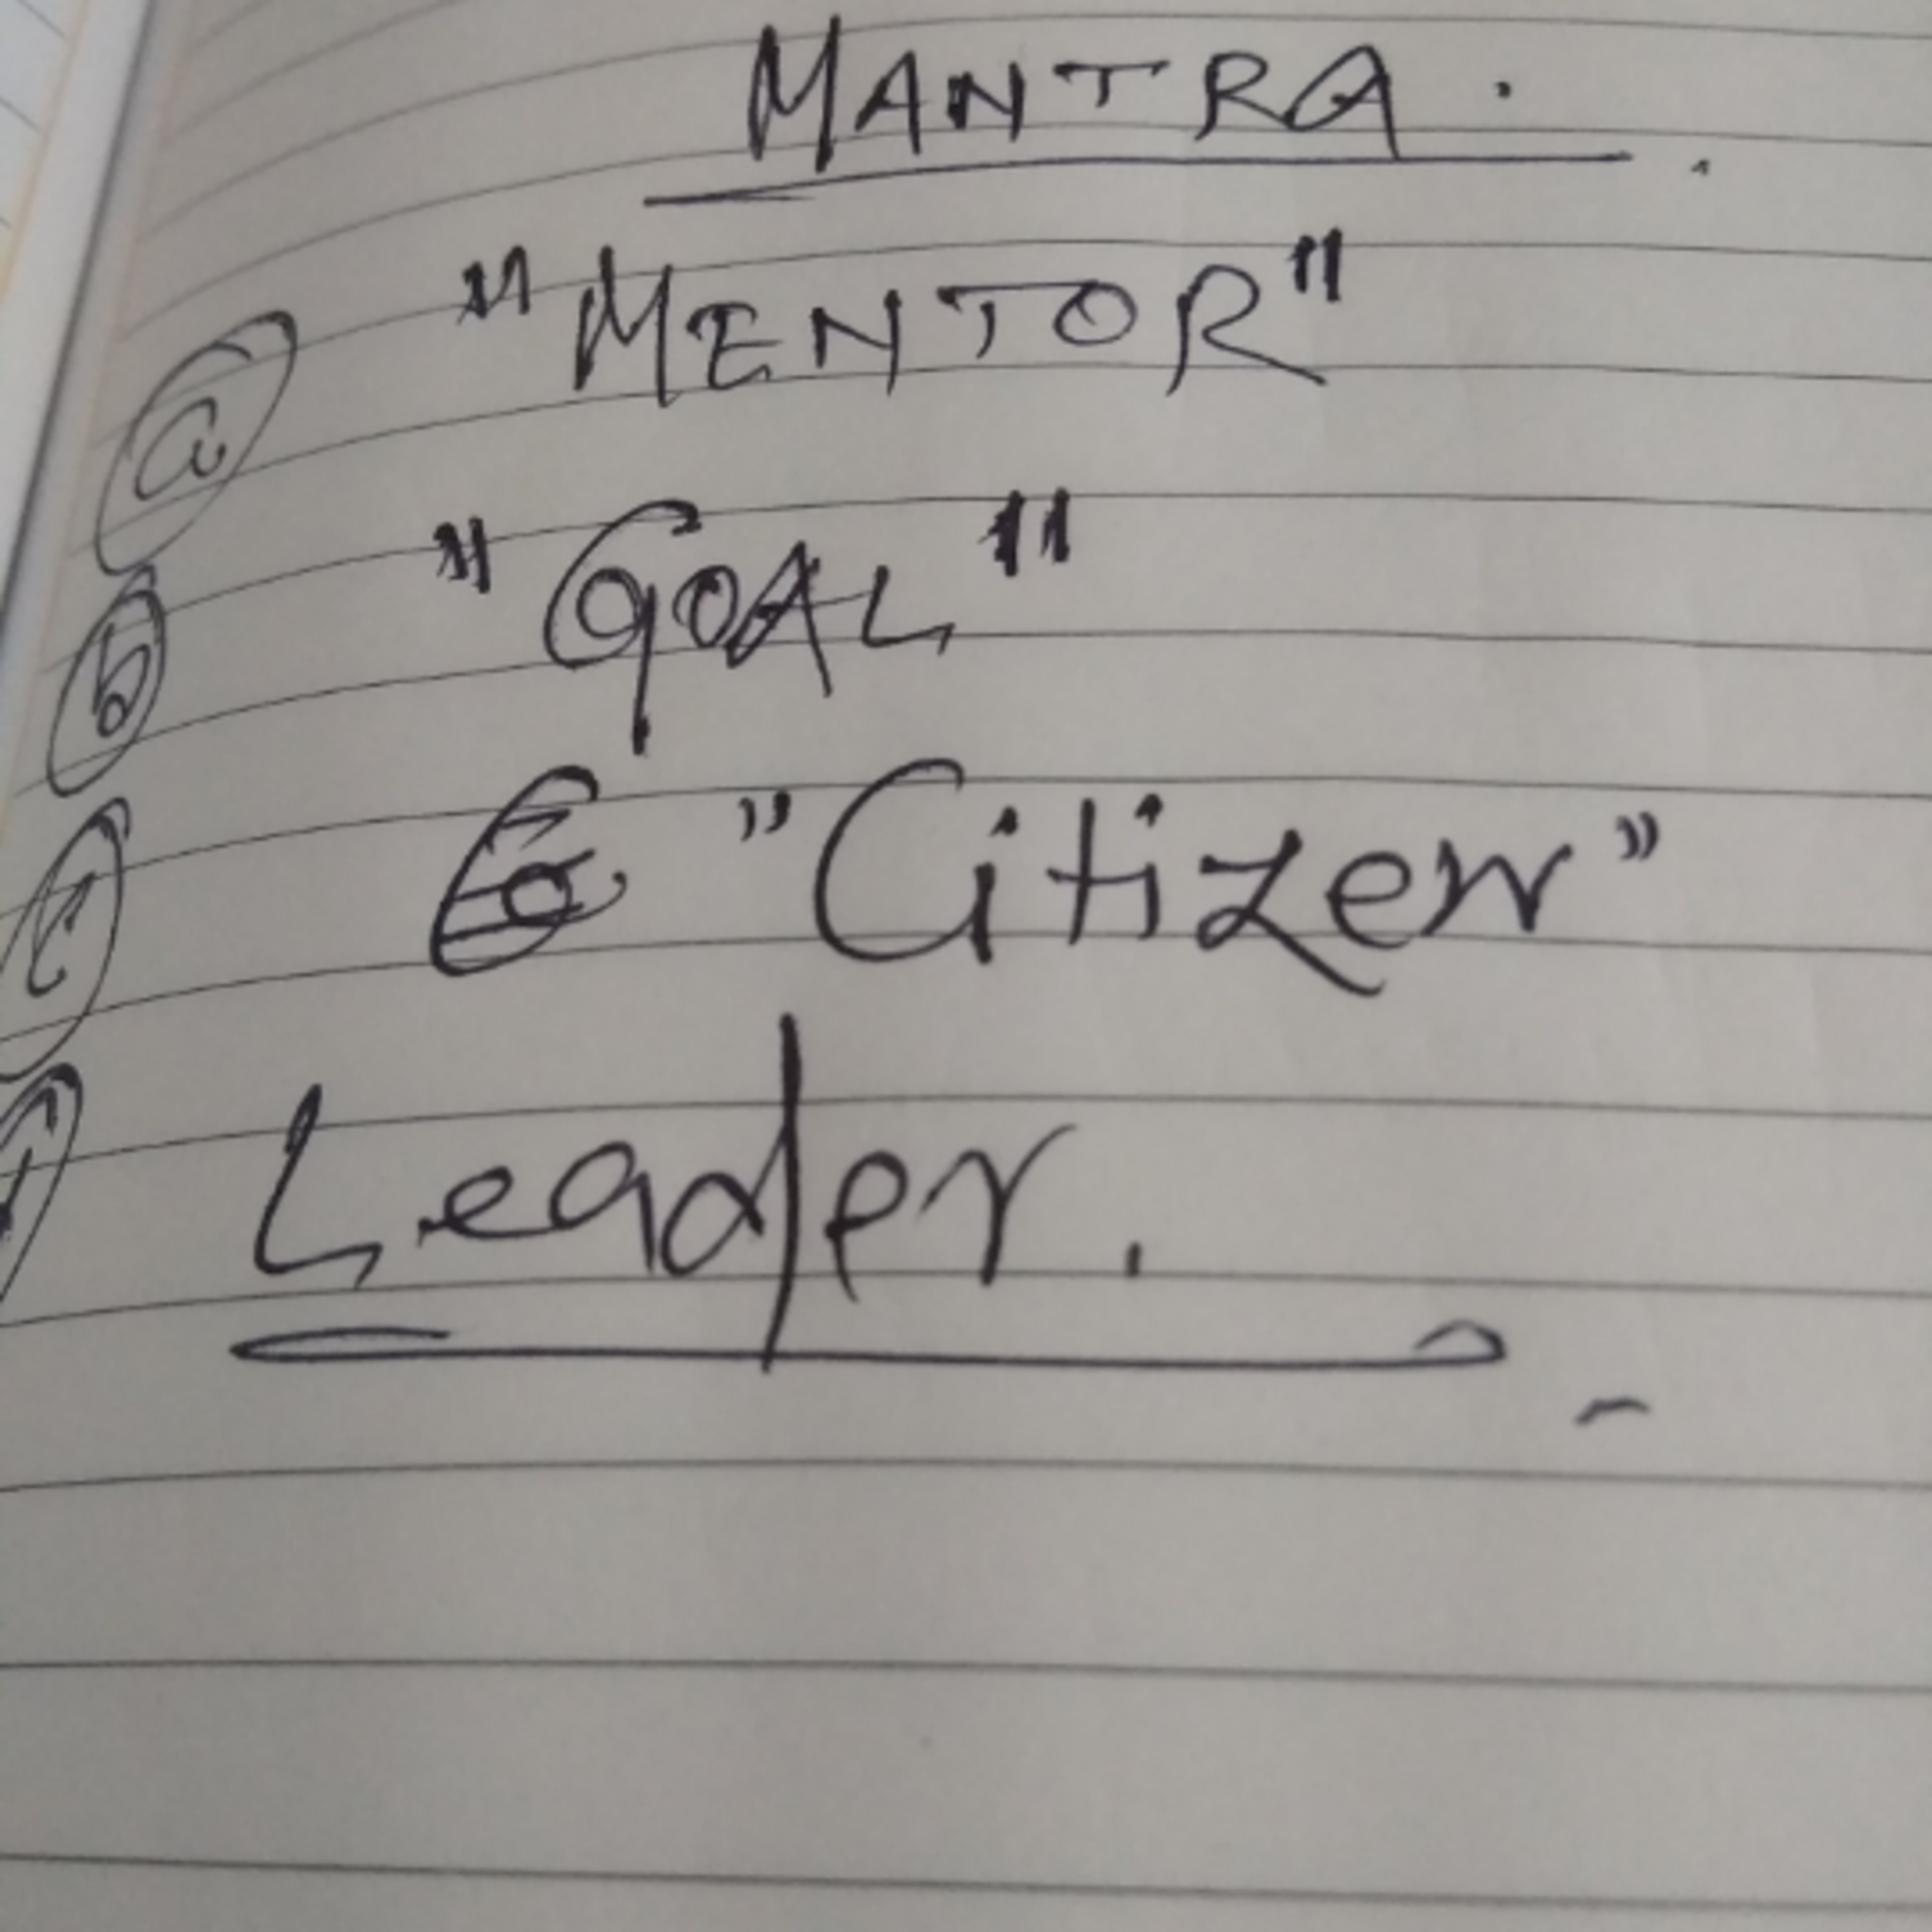 MANTRA.
a "MENTOR"
b "GOAL"
c "Citizen"
Leader.